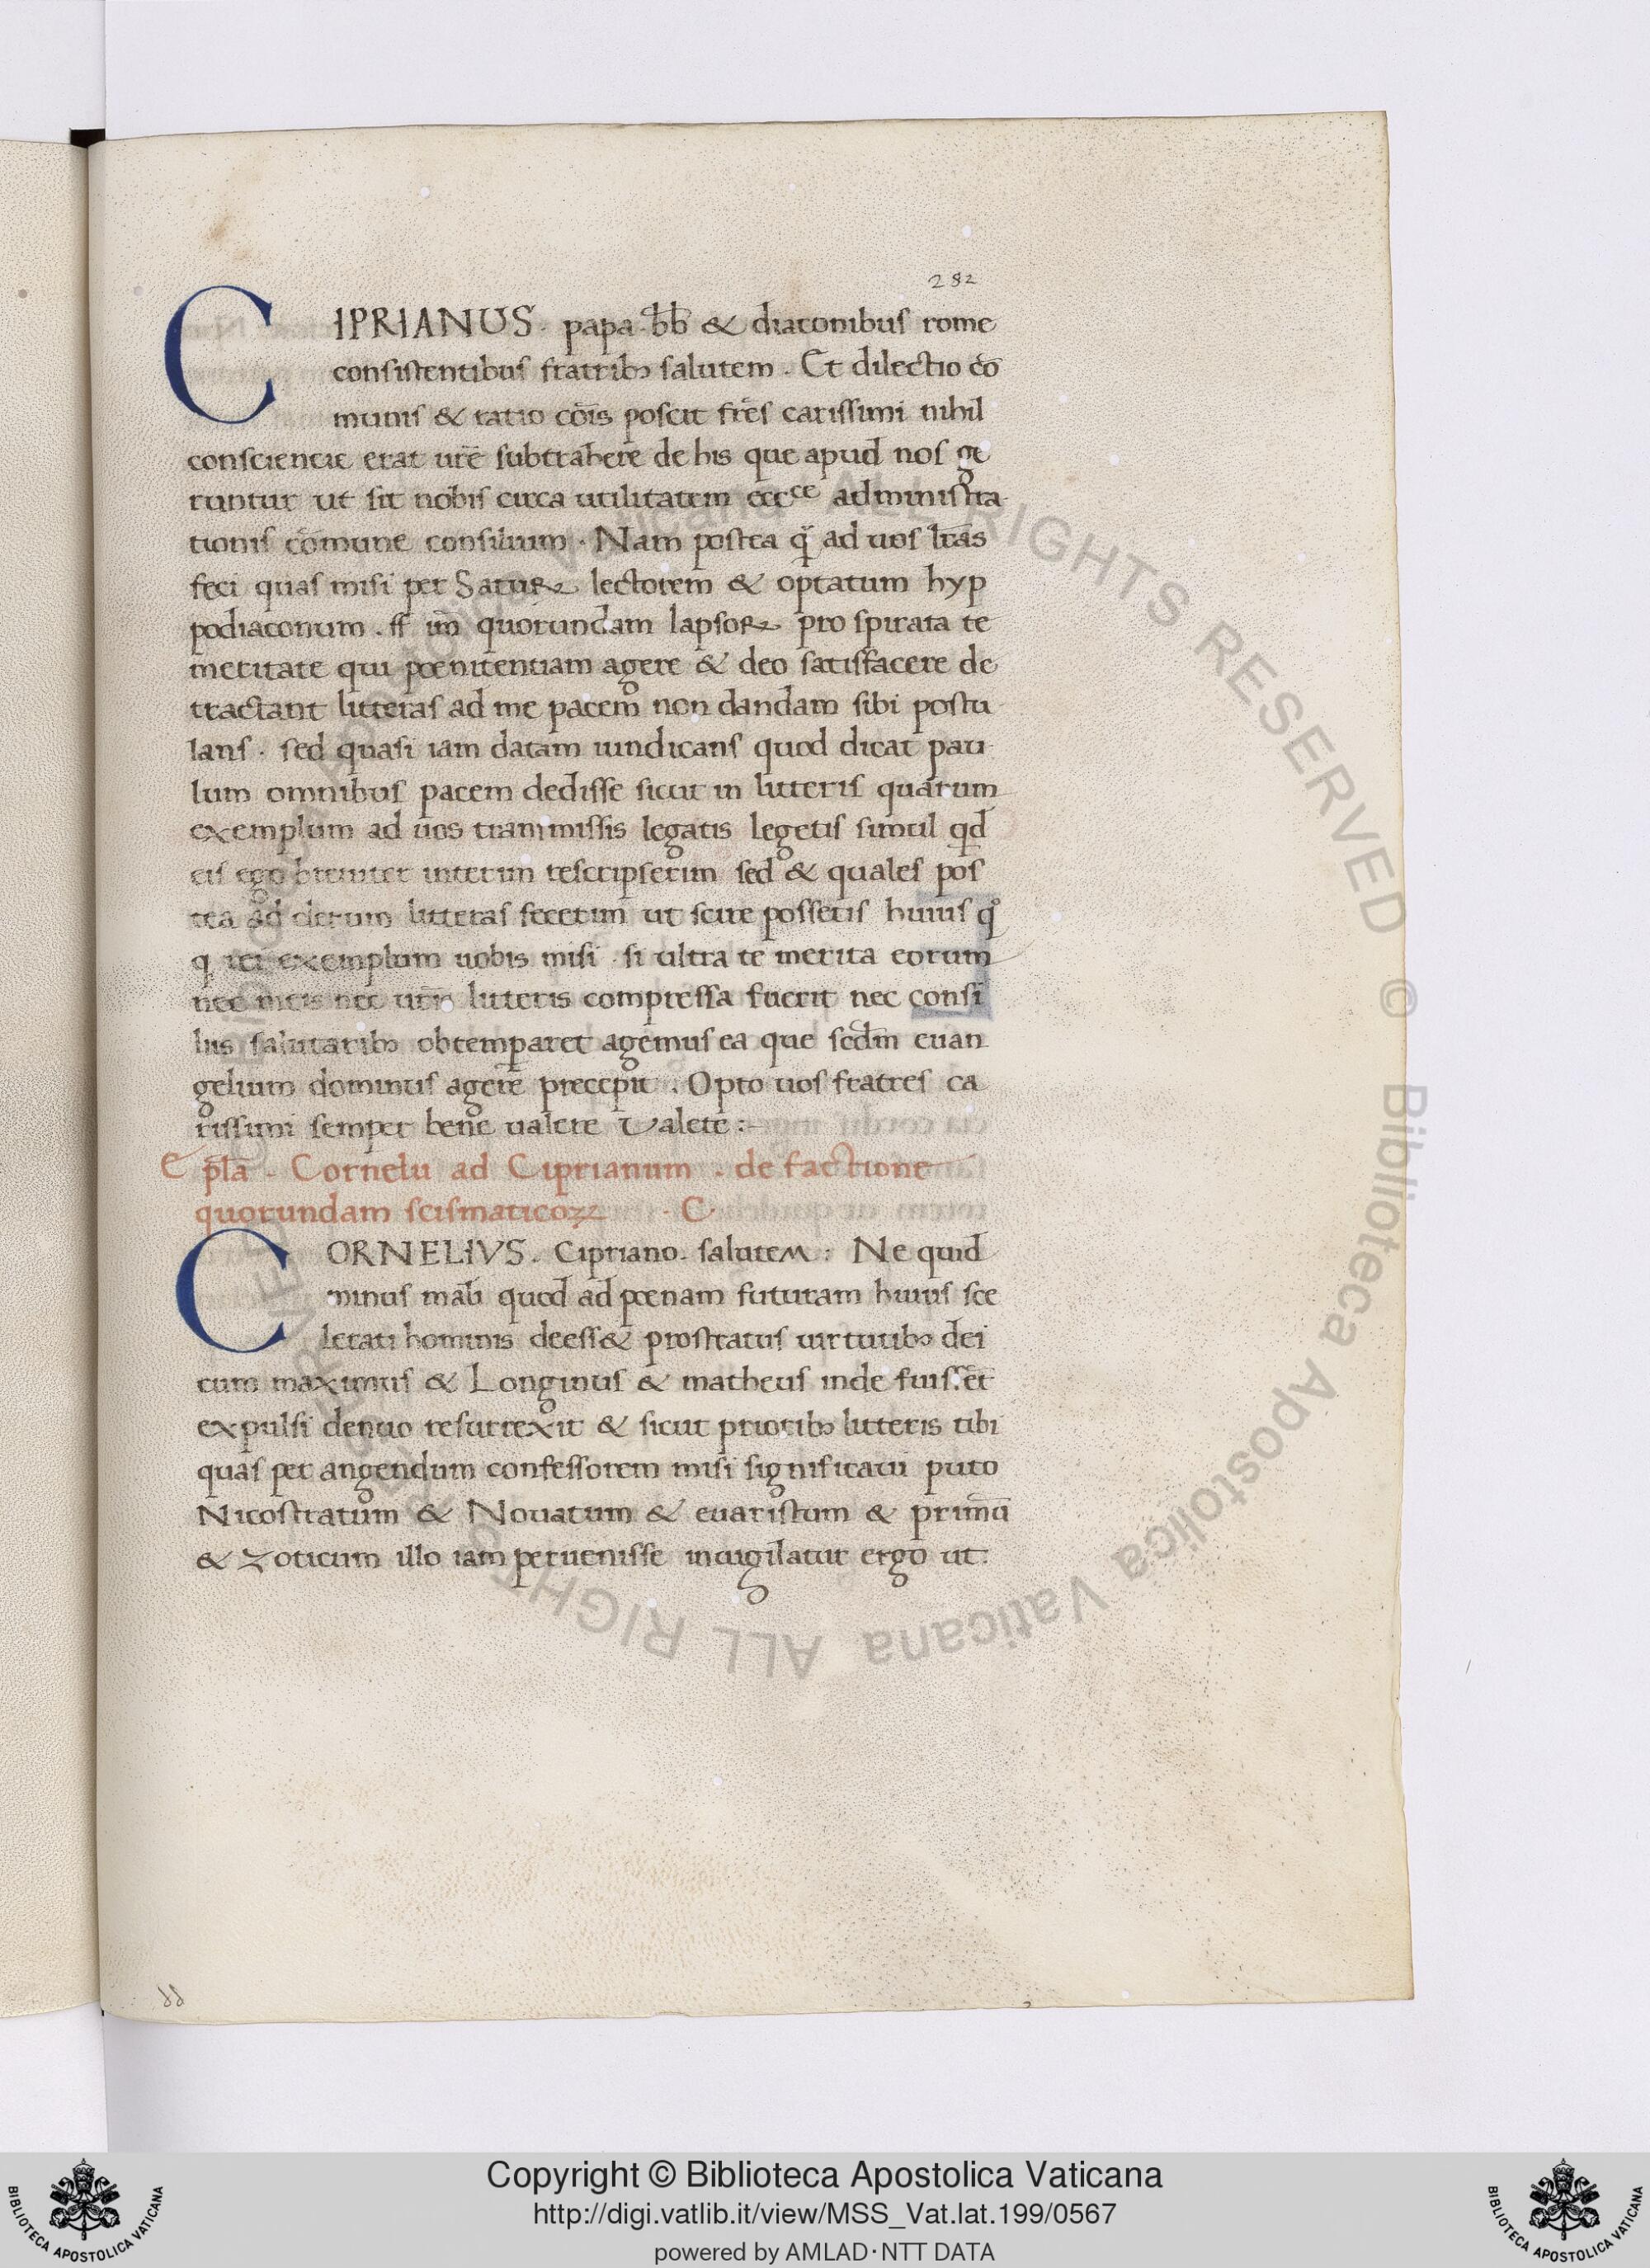 282
CIPRIANUS. papa. bb̄ & diaconibus rome
consistentibus fratribꝫ salutem. Et dilectio cō
munis & ratio cōis poscit frēs carissimi nihil
consciencie erat urē subtrahere de his que apud nos ge
runtur ut sit nobis circa utilitatem eccᶜᵉ administra
tionis cōmune consilium. Nam postea q̄ ad uos lr̄as
feci quas misi per Satuꝝ lectorem & optatum hyp
podiaconum. ff im̄ quorundam lapsoꝝ pro spirata te
meritate qui poenitentiam agere & deo satisfacere de
tractant litteras ad me pacem non dandam sibi postu
lans. sed quasi iam datam uindicans quod dicat pau
lum omnibus pacem dedisse sicut in litteris quarum
exemplum ad uos transmissis legatis legetis simul qd̄
eis ego breuiter interim rescripserim sed & quales pos
tea ad clerum litteras fecerint ut scire possetis huius qͦ
q rei exemplum uobis misi. si ultra te merita eorum
nec meis nec urīs litteris compressa fuerit nec consi
liis salutaribꝫ obtemparet agemus ea que scdm̄ euan
gelium dominus agere precepit. Opto uos fratres ca
rissimi semper bene ualere Valete:
Epl̄a. Cornelii ad Ciprianum. de factione
quorundam scismaticoꝝ. C
CORNELIVS. Cipriano. salutem: Ne quid
minus mali quod ad poenam futuram huius sce
lerati hominis deess& prostratus uirtutibꝫ dei
cum maximus & Longinus & matheus inde fuis.ēt
expulsi denuo resurrexit & sicut prioribꝫ litteris tibi
quas per angendum confessorem misi significaui puto
Nicostratum & Nouatum & euaristum & primū
& Zoticum illo iam peruenisse inuigilatur ergo ut:
© Biblioteca Apostolica Vaticana ALL RIGHTS RESERVED
Copyright © Biblioteca Apostolica Vaticana
http://digi.vatlib.it/view/MSS_Vat.lat.199/0567
powered by AMLAD·NTT DATA
BIBLIOTECA APOSTOLICA VATICANA
BIBLIOTECA APOSTOLICA VATICANA